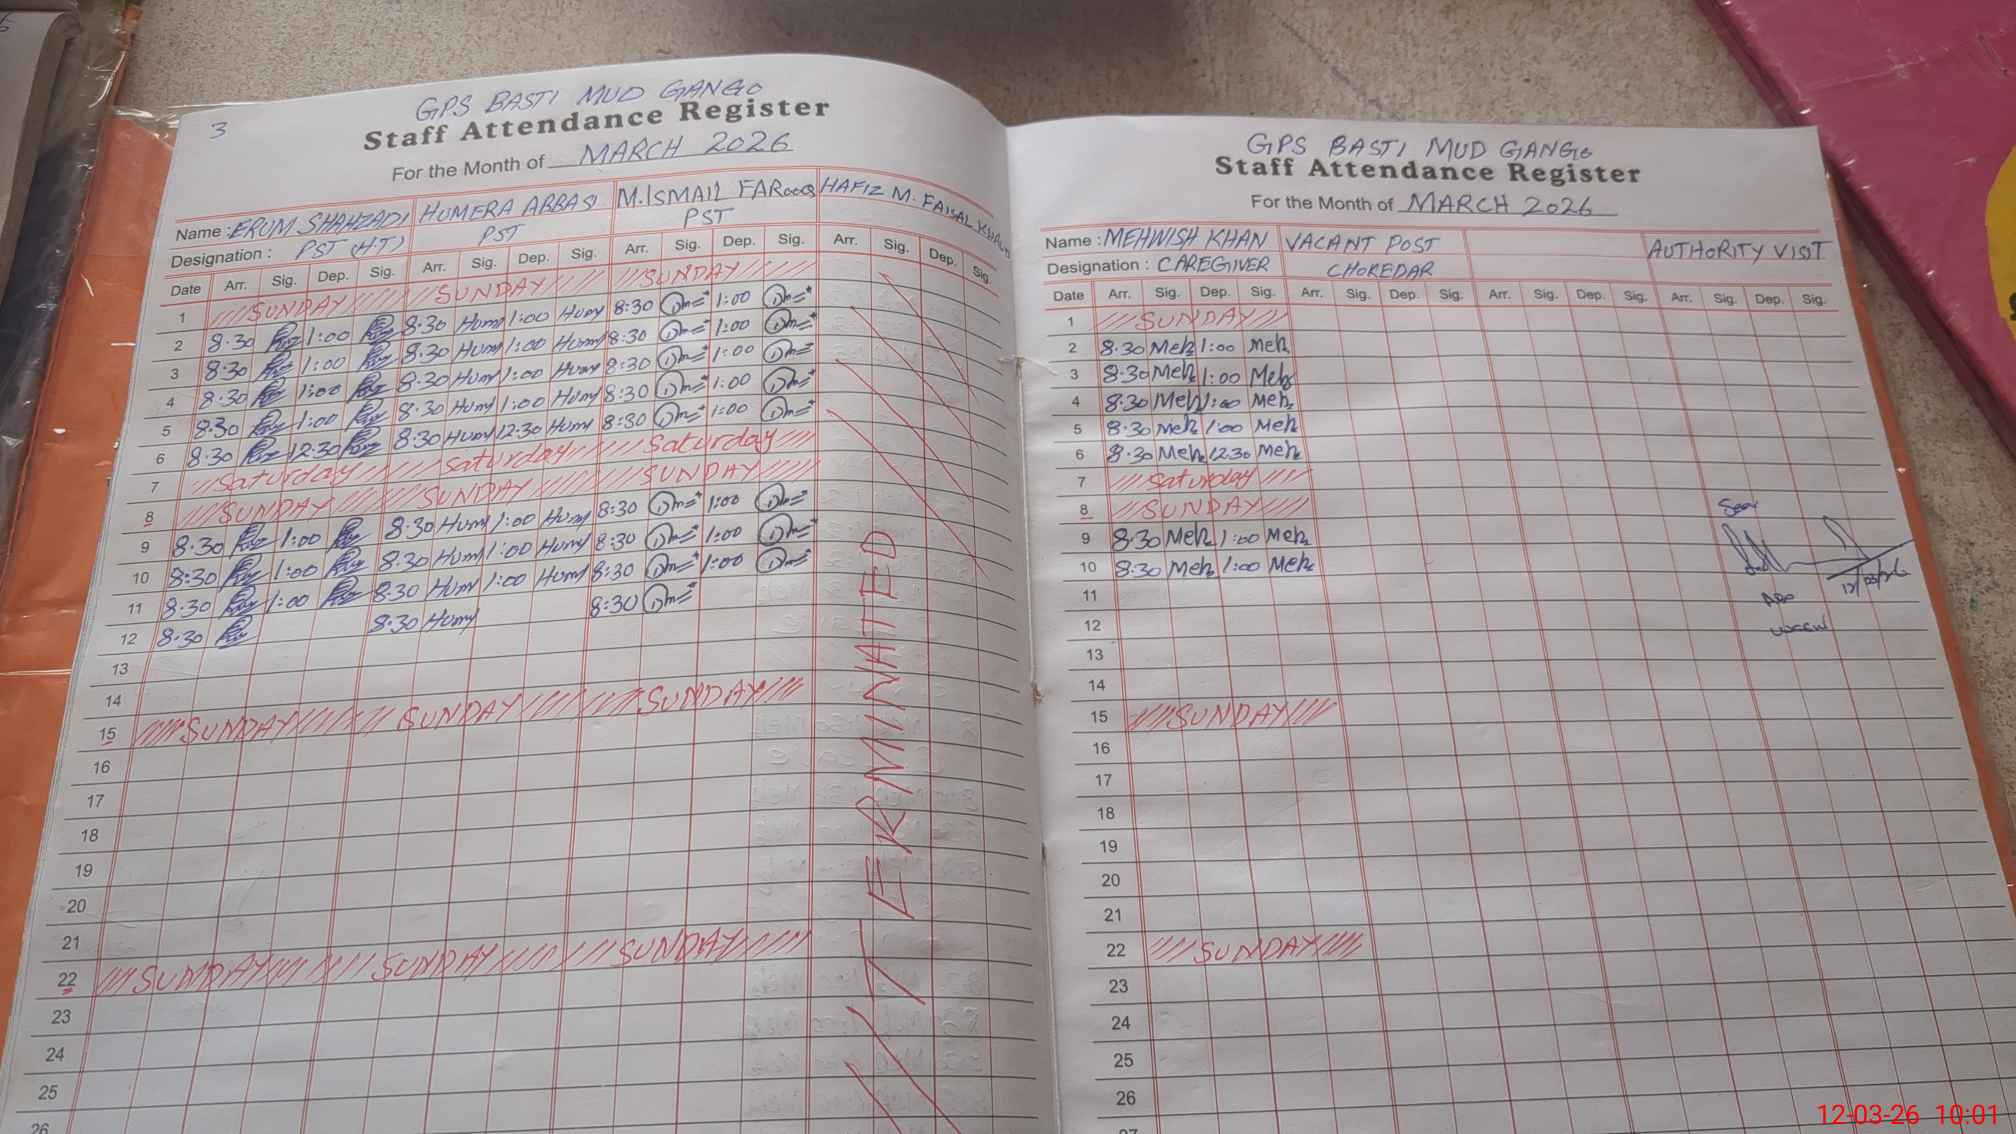 3
GPS BASTI MUD GANGO
Staff Attendance Register
For the Month of MARCH 2026
Name : ERUM SHAHZADI HUMERA ABBASI M.ISMAIL FAROOQ HAFIZ M. FAISAL
Designation : PST (H.T) PST PST
Date Arr. Sig. Dep. Sig. Arr. Sig. Dep. Sig. Arr. Sig. Dep. Sig. Arr. Sig. Dep. Sig.
1 SUNDAY SUNDAY SUNDAY
2 8:30 1:00 8:30 Hum 1:00 Hum 8:30 1:00
3 8:30 1:00 8:30 Hum 1:00 Hum 8:30 1:00
4 8:30 1:00 8:30 Hum 1:00 Hum 8:30 1:00
5 8:30 1:00 8:30 Hum 1:00 Hum 8:30 1:00
6 8:30 12:30 8:30 Hum 12:30 Hum 8:30 1:00
7 Saturday Saturday Saturday
8 SUNDAY SUNDAY SUNDAY
9 8:30 1:00 8:30 Hum 1:00 Hum 8:30 1:00
10 8:30 1:00 8:30 Hum 1:00 Hum 8:30 1:00
11 8:30 1:00 8:30 Hum 1:00 Hum 8:30 1:00
12 8:30 8:30 Hum 8:30
13
14
15 SUNDAY SUNDAY SUNDAY
16
17
18
19
20
21
22 SUNDAY SUNDAY SUNDAY
23
24
25
26
TERMINATED
GPS BASTI MUD GANGO
Staff Attendance Register
For the Month of MARCH 2026
Name : MEHWISH KHAN VACANT POST AUTHORITY VISIT
Designation : CAREGIVER CHOKEDAR
Date Arr. Sig. Dep. Sig. Arr. Sig. Dep. Sig. Arr. Sig. Dep. Sig. Arr. Sig. Dep. Sig.
1 SUNDAY
2 8:30 Meh 1:00 Meh
3 8:30 Meh 1:00 Meh
4 8:30 Meh 1:00 Meh
5 8:30 Meh 1:00 Meh
6 8:30 Meh 12:30 Meh
7 Saturday
8 SUNDAY
Seen
9 8:30 Meh 1:00 Meh
10 8:30 Meh 1:00 Meh
12/03/26
11
12
13
14
15 SUNDAY
16
17
18
19
20
21
22 SUNDAY
23
24
25
26
27
12-03-26 10:01